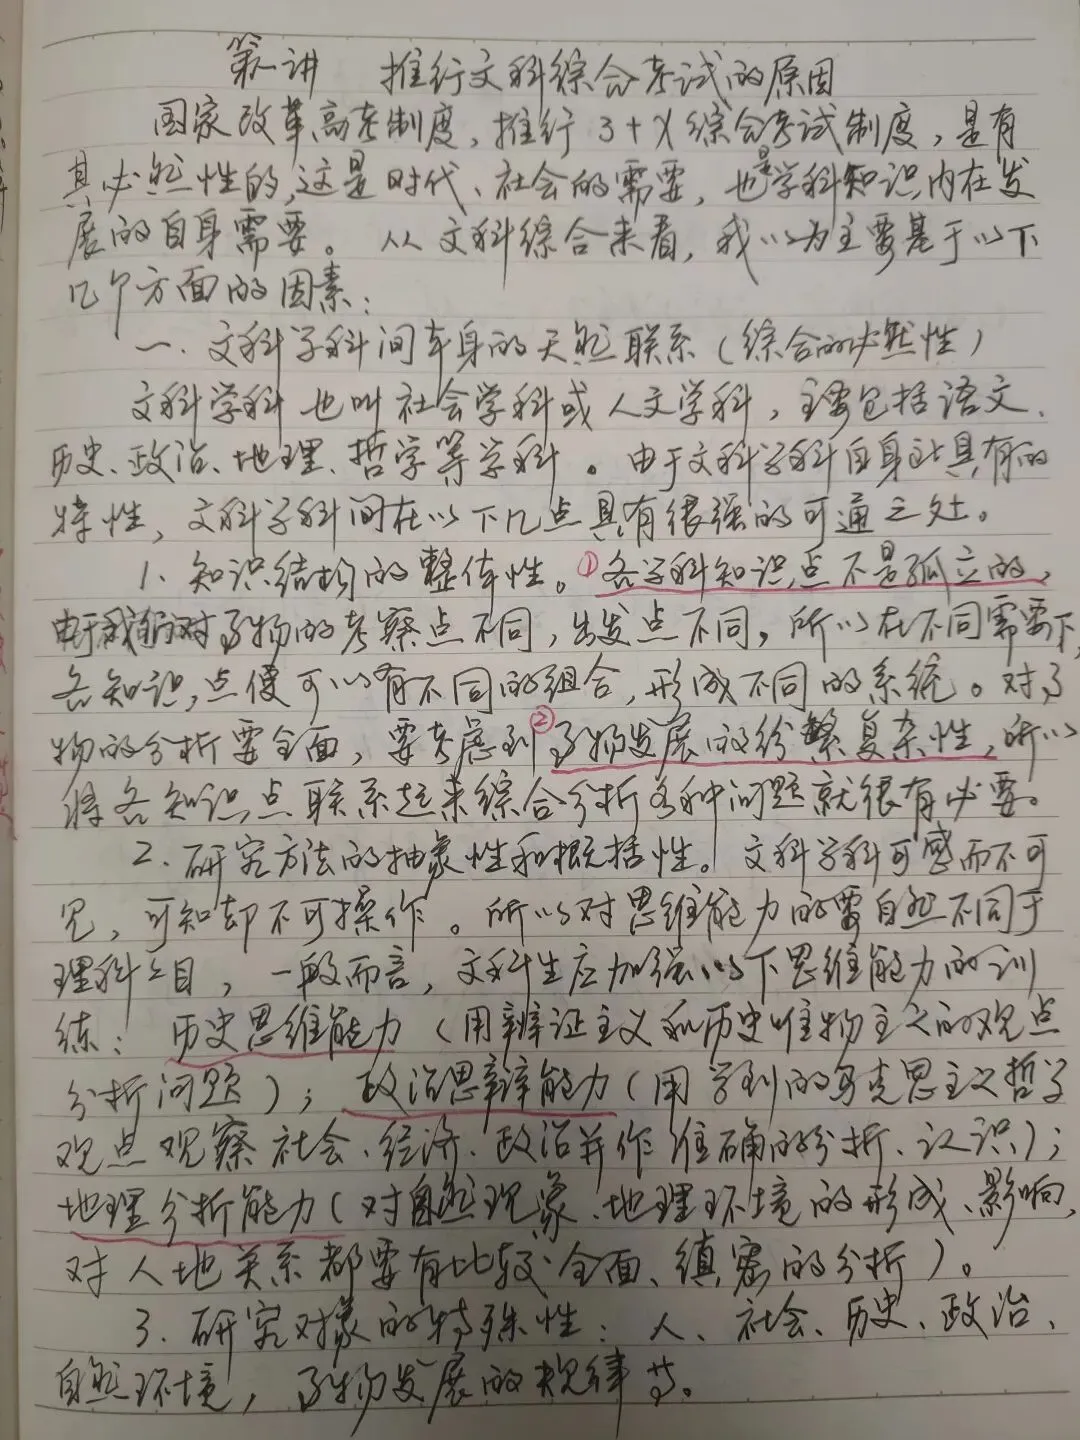 第一讲 推行文科综合考试的原因
国家改革高考制度,推行3+X综合考试制度,是有
其必然性的,这是时代、社会的需要,也是学科知识内在发
展的自身需要。从文科综合来看,我以为主要基于以下
几个方面的因素:
一、文科学科间本身的天然联系(综合的必然性)
文科学科也叫社会学科或人文学科,主要包括语文、
历史、政治、地理、哲学等学科。由于文科学科自身所具有的
特性,文科学科间在以下几点具有很强的可通之处。
1、知识结构的整体性。①各学科知识点不是孤立的,
由于我们对事物的考察点不同,出发点不同,所以在不同需要下,
各知识点便可以有不同的组合,形成不同的系统。对事
物的分析要全面,要考虑到②事物发展的纷繁复杂性,所以
将各知识点联系起来综合分析各种问题就很有必要。
2、研究方法的抽象性和概括性。文科学科可感而不可
见,可知却不可操作。所以对思维能力的要自然不同于
理科之目,一般而言,文科生应加强以下思维能力的训
练:历史思维能力(用辨证主义和历史唯物主义的观点
分析问题);政治思辩能力(用学到的马克思主义哲学
观点观察社会、经济、政治并作准确的分析、认识);
地理分析能力(对自然现象、地理环境的形成、影响,
对人地关系都要有比较全面、缜密的分析)。
3、研究对象的特殊性:人、社会、历史、政治、
自然环境,事物发展的规律等。